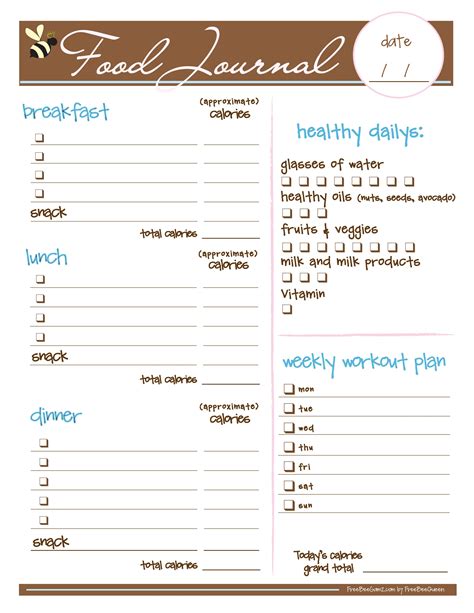 Food Journal
date
/ /
breakfast
(approximate)
calories
snack
total calories
lunch
(approximate)
calories
snack
total calories
dinner
(approximate)
calories
snack
total calories
healthy dailys:
glasses of water
healthy oils (nuts, seeds, avocado)
fruits & veggies
milk and milk products
Vitamin
weekly workout plan
mon
tue
wed
thu
fri
sat
sun
Today's calories
grand total
FreeBeeGumz.com by FreeBeeQueen